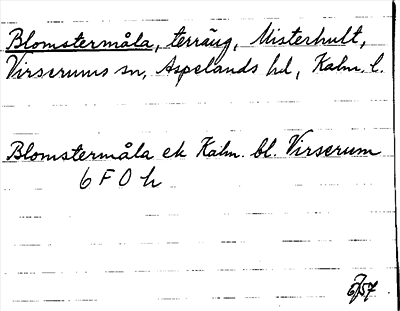 Blomstermåla, terräng, Misterhult,
Virserums sn, Aspelands hd, Kalm. l.
Blomstermåla ek Kalm. bl. Virserum
6 F 0 h